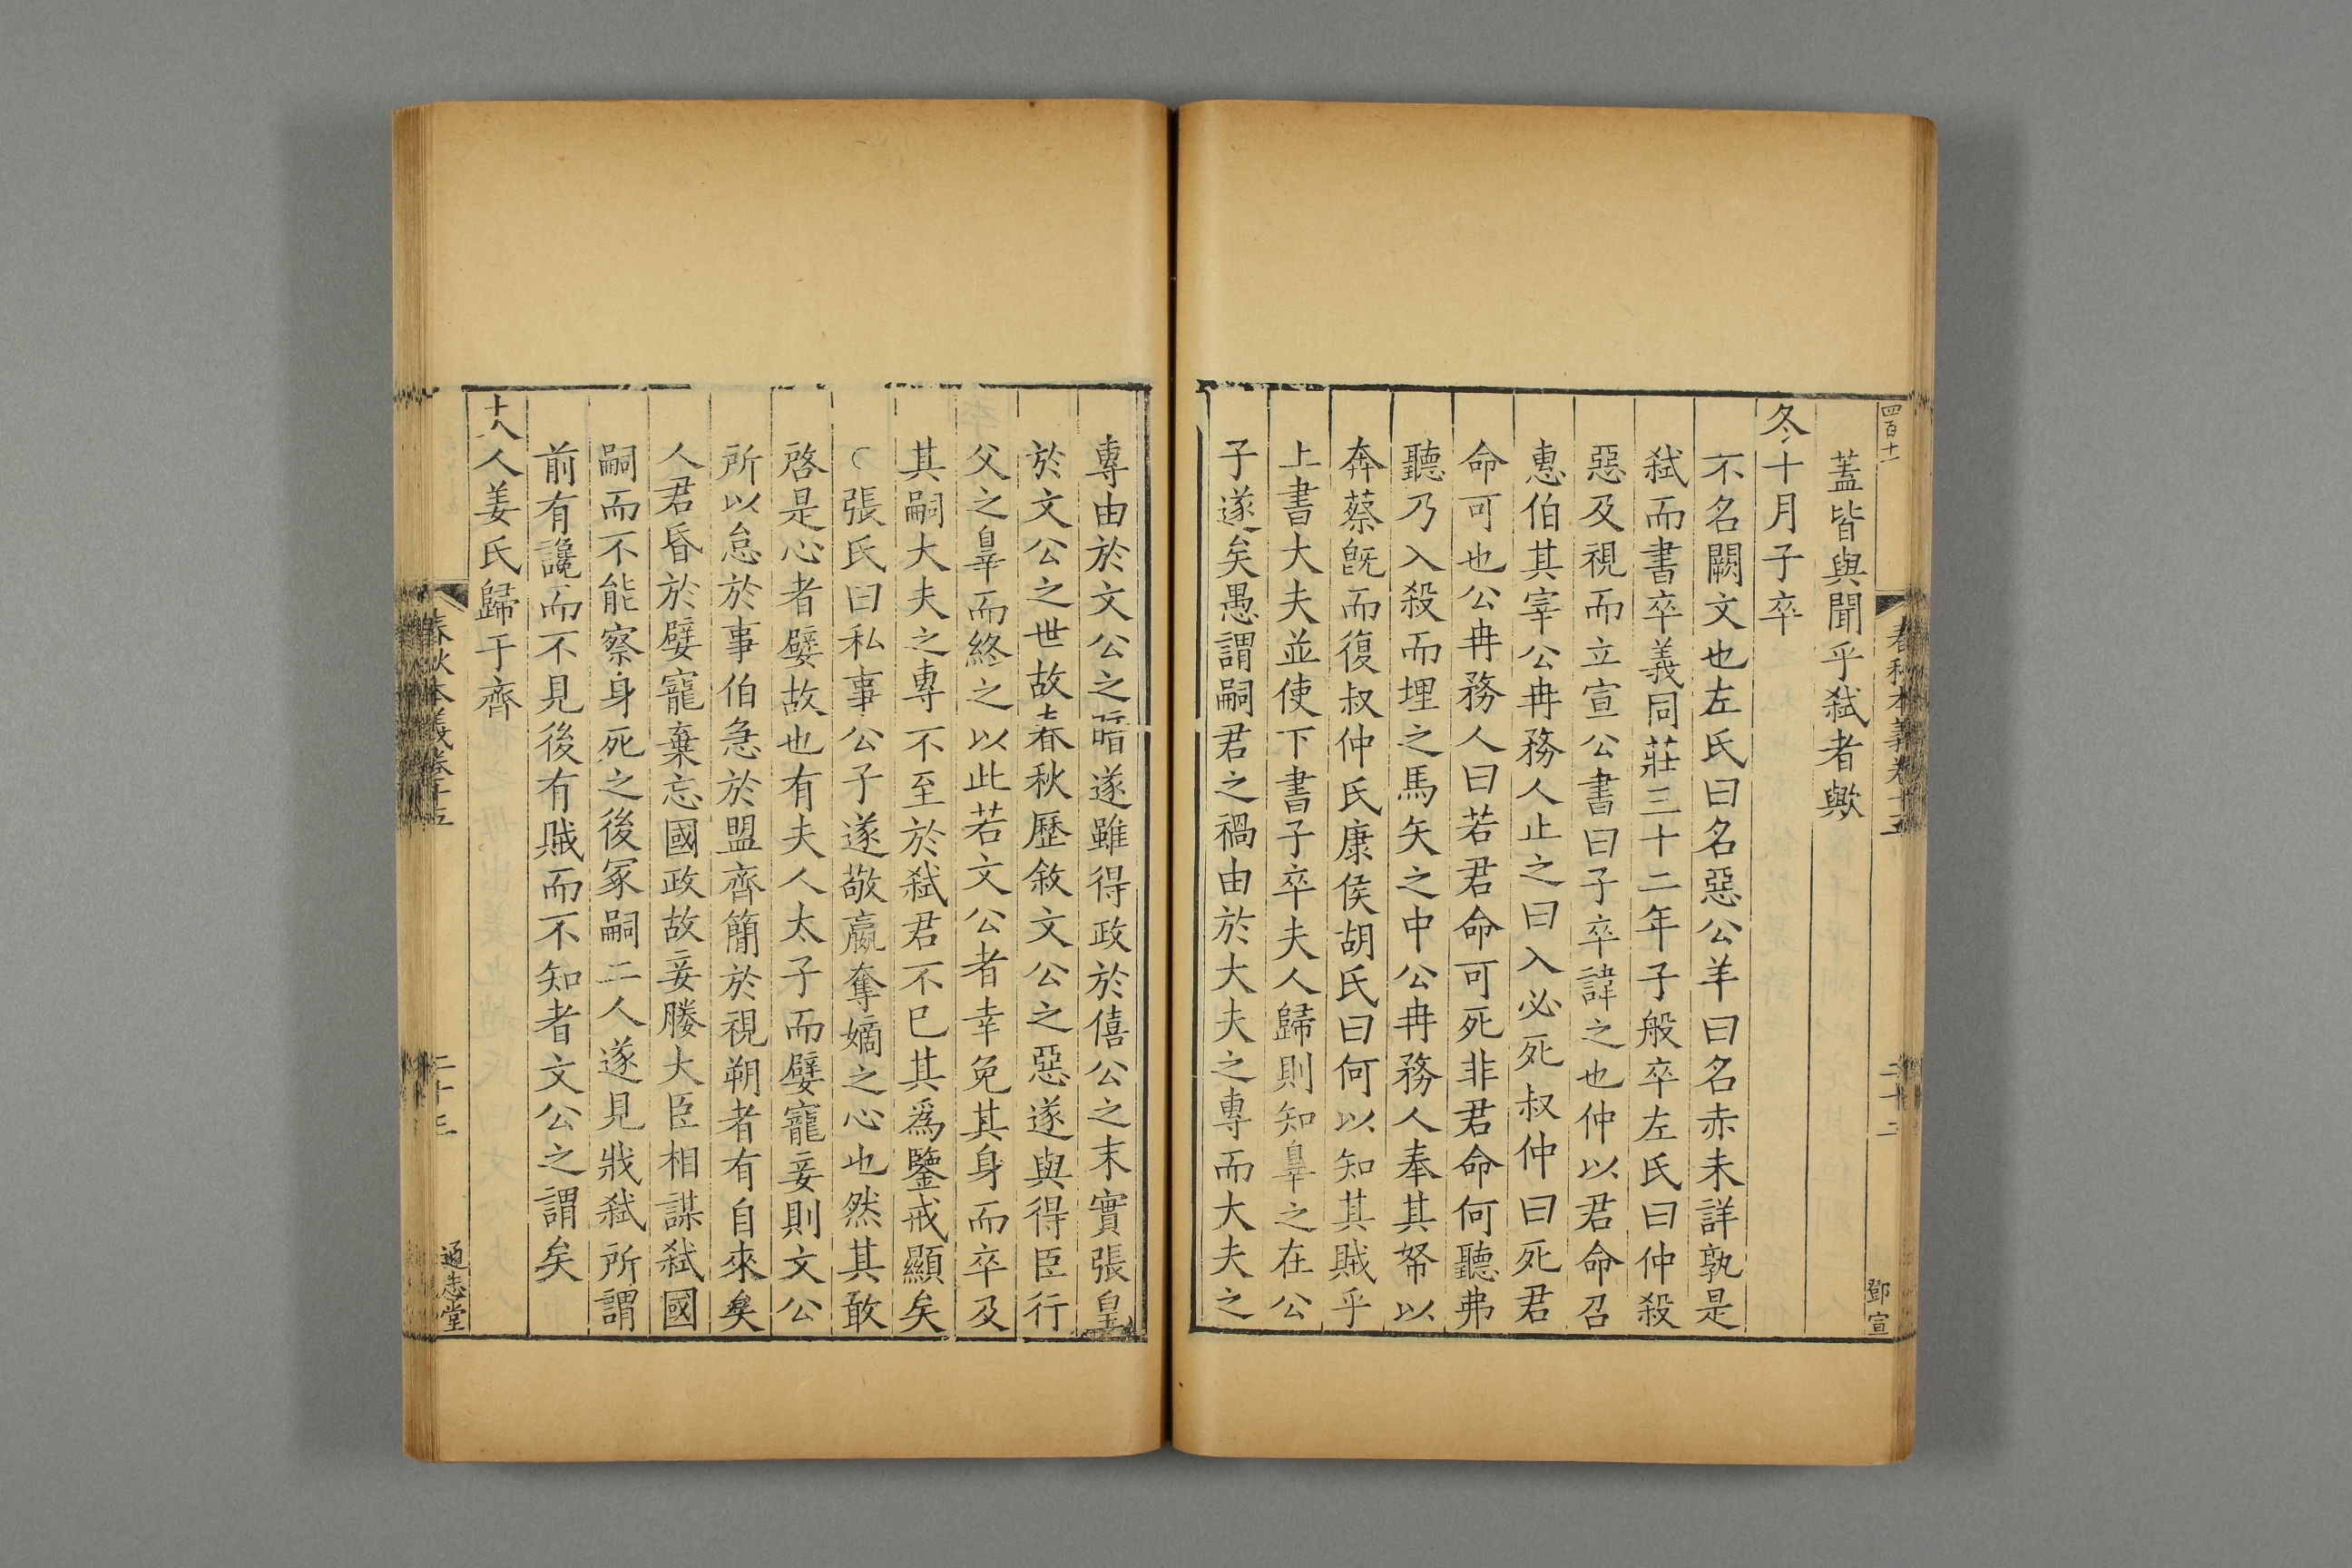 四百十一
春秋本義卷十五
二十二
鄧宣
蓋皆與聞乎弑者歟
冬十月子卒
不名闕文也左氏曰名惡公羊曰名赤未詳孰是
弑而書卒義同莊三十二年子般卒左氏曰仲殺
惡及視而立宣公書曰子卒諱之也仲以君命召
惠伯其宰公冉務人止之曰入必死叔仲曰死君
命可也公冉務人曰若君命可死非君命何聽弗
聽乃入殺而埋之馬矢之中公冉務人奉其帑以
奔蔡旣而復叔仲氏康侯胡氏曰何以知其賊乎
上書大夫並使下書子卒夫人歸則知辠之在公
子遂矣愚謂嗣君之禍由於大夫之專而大夫之
專由於文公之暗遂雖得政於僖公之末實張皇
於文公之世故春秋歷敘文公之惡遂與得臣行
父之辠而終之以此若文公者幸免其身而卒及
其嗣大夫之專不至於弑君不已其爲鑒戒顯矣
張氏曰私事公子遂敬嬴奪嫡之心也然其敢
啓是心者嬖故也有夫人太子而嬖寵妾則文公
所以怠於事伯急於盟齊簡於視朔者有自來矣
人君昏於嬖寵棄忘國政故妾媵大臣相謀弑國
嗣而不能察身死之後冢嗣二人遂見戕弑所謂
前有讒而不見後有賊而不知者文公之謂矣
人姜氏歸于齊
春秋本義卷十五
二十三
通志堂